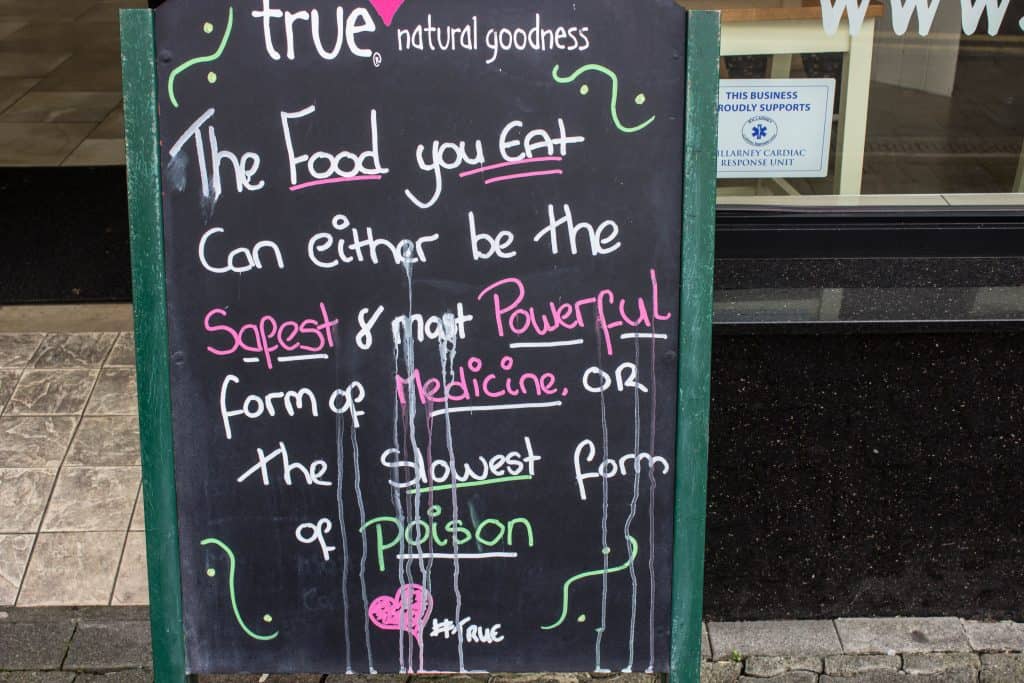 true®
natural goodness
The Food you EAt
Can either be the
Safest & most Powerful
form of Medicine. OR
the Slowest form
of poison
#TRUE
www.
THIS BUSINESS
ROUDLY SUPPORTS
KILLARNEY
ILLARNEY CARDIAC
RESPONSE UNIT